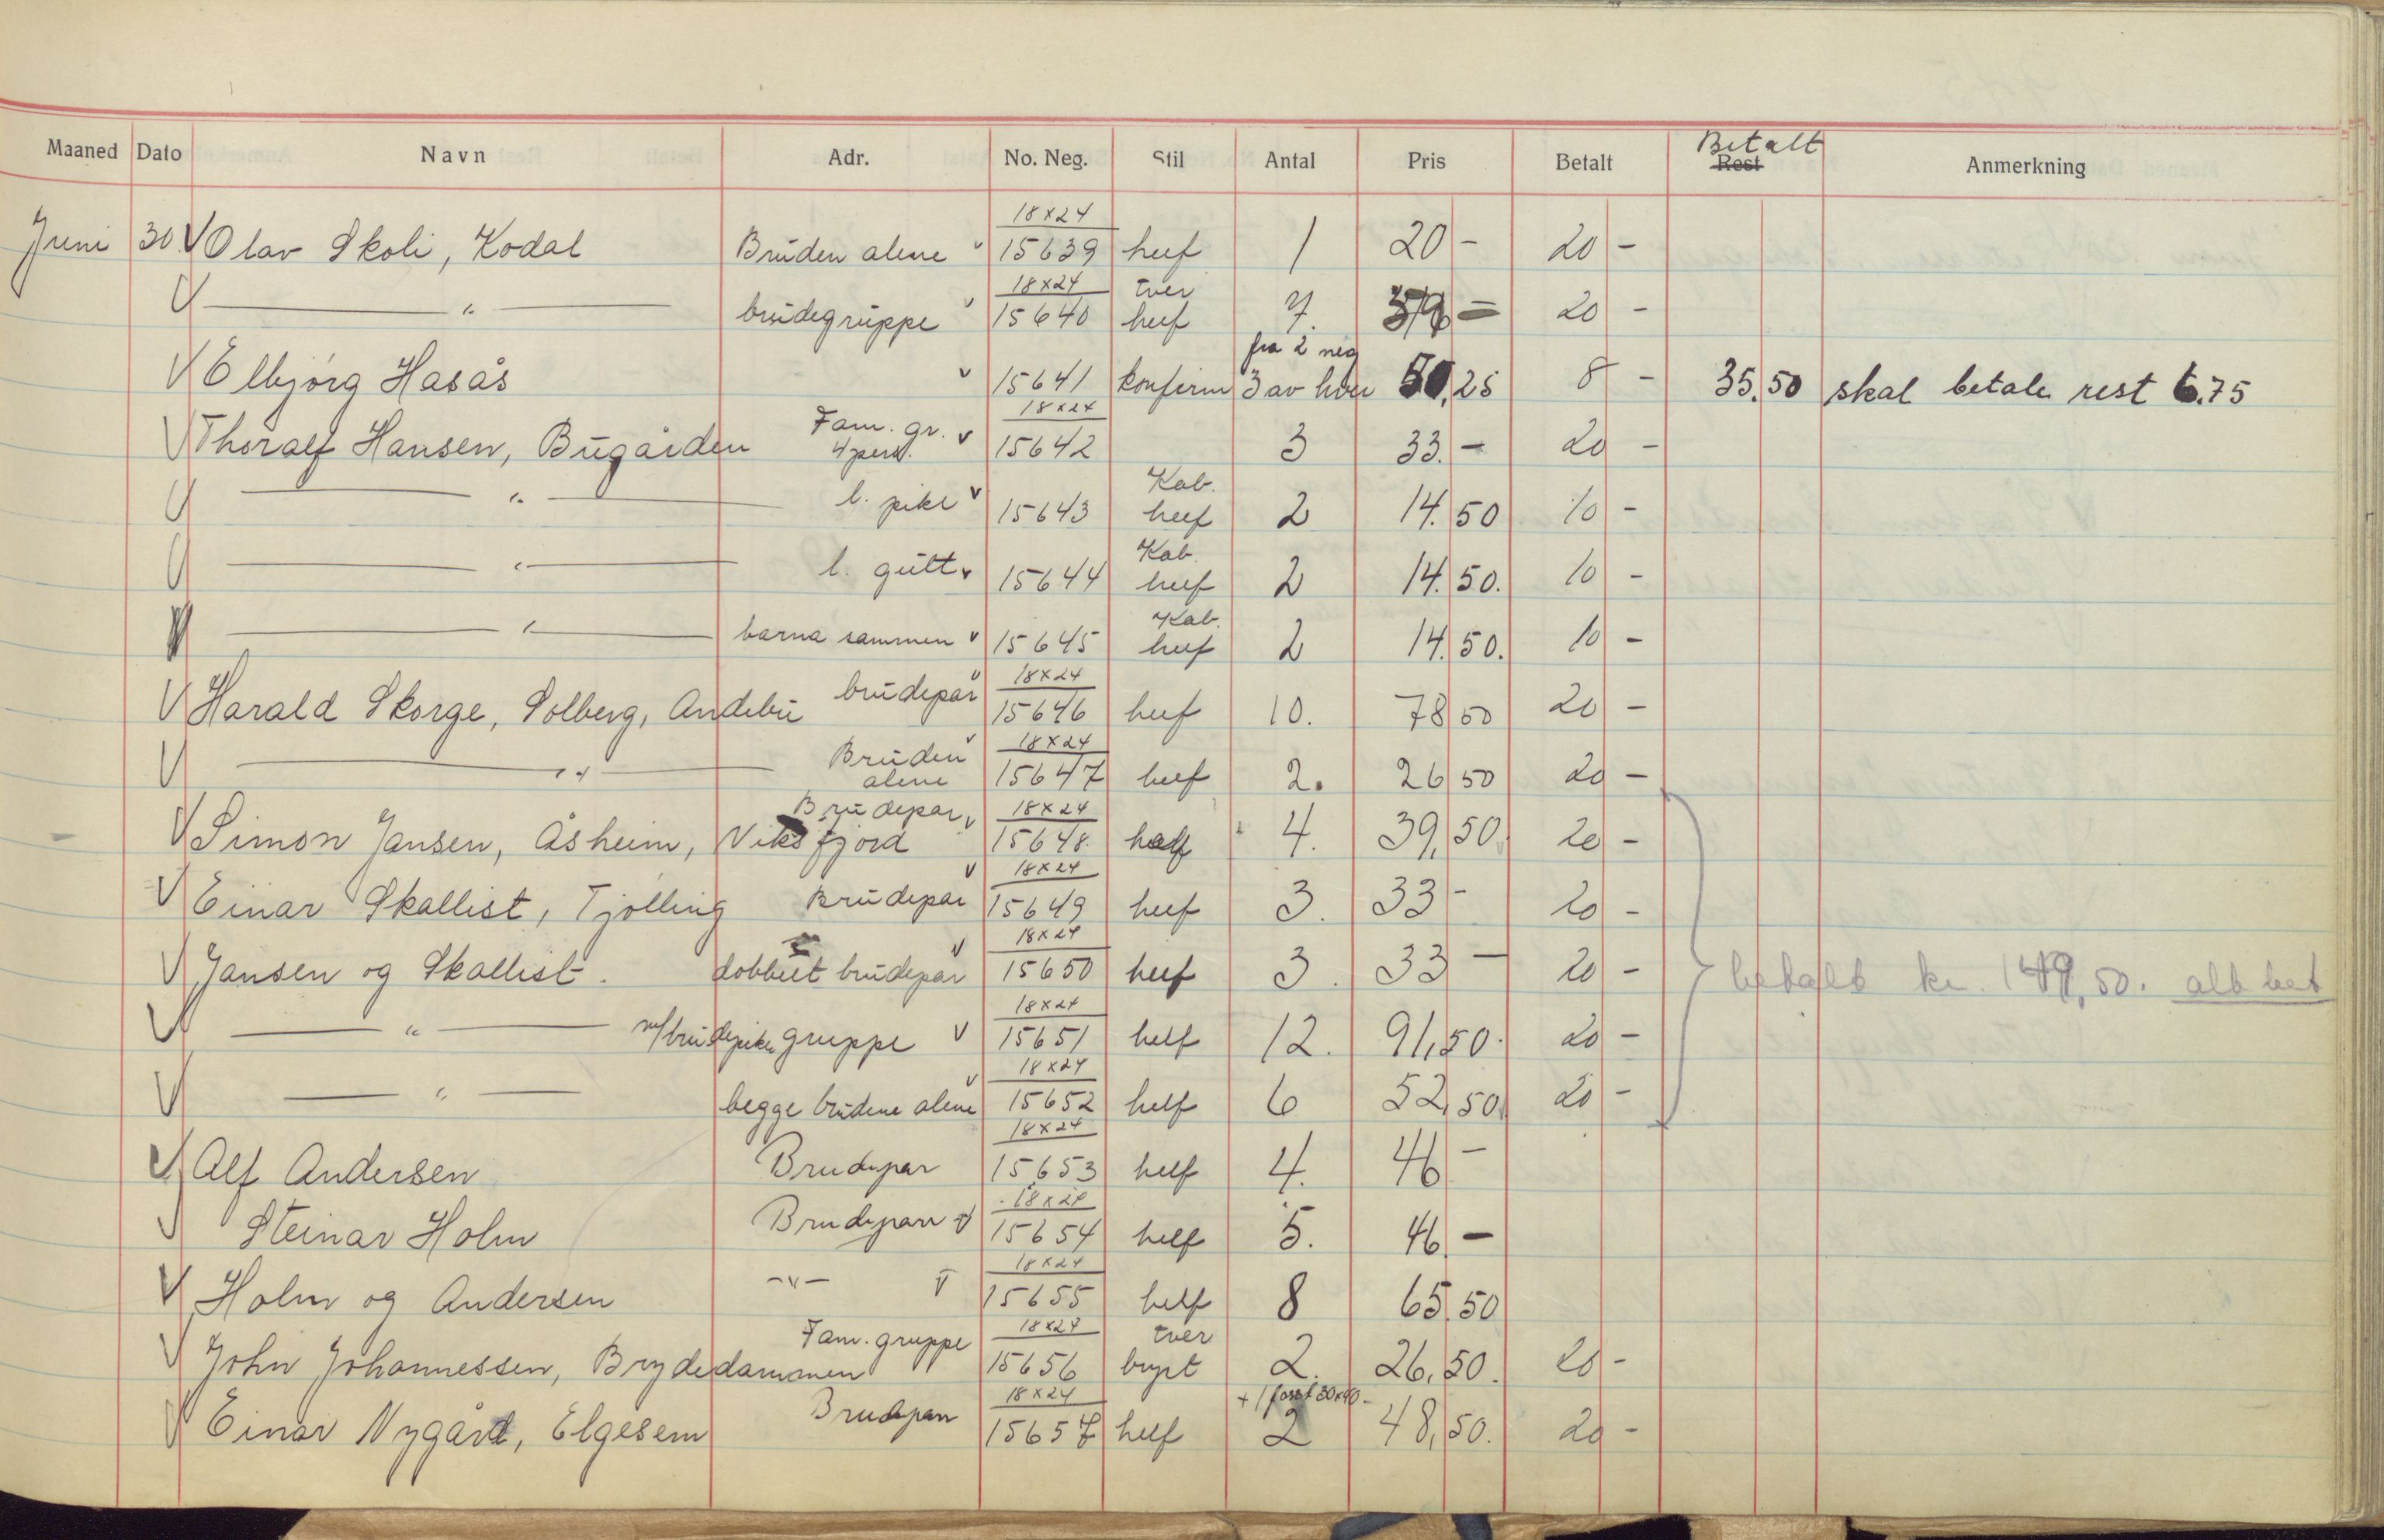 Betalt
Maaned Dato Navn Adr. No. Neg. Stil Antal Pris Betalt Rest Anmerkning
18x24
Juni 30. V Olav Skoli, Kodal Bruden alene v 15639 heef 1 20 - 20 -
18x24 tver
V — " — brudegruppe v 15640 heef 7. 20 -
fra 2 neg
V Elbjørg Hasås v 15641 konfirm 3 av hver 50,25 8 - 35,50 skal betale rest 6.75
Fam. gr. v 18x24
V Thoralf Hansen, Bugården 4 pers. 15642 3 33. - 20 -
Kab.
V — " — l. pike v 15643 heef 2 14.50 10 -
Kab.
V — " — l. gutt v 15644 heef 2 14.50. 10 -
Kab.
V — " — barna sammen v 15645 heef 2 14.50. 10 -
18x24
V Harald Skorge, Solberg, Andebu brudepar v 15646 heef 10. 78 50 20 -
Bruden v 18x24
V — " — alene 15647 heef 2. 26 50 20 -
Brudepar v 18x24
V Simon Jansen, Åsheim, Viksfjord 15648. half 4. 39,50. 20 -
18x24
V Einar Skallist, Tjølling Brudepar v 15649 heef 3. 33 - 20 -
18x24
V Jansen og Skallist. dobbelt brudepar v 15650 heef 3. 33 - 20 - betalt kr. 149,50. alt bet
18x24
V — " — m/brudepiker gruppe v 15651 helf 12. 91,50. 20 -
18x24
V — " — begge brudene alene v 15652 helf 6 52,50. 20 -
18x24
V Alf Andersen Brudepar 15653 helf 4. 46 -
18x24
V Steinar Holm Brudepar v 15654 helf 5. 46 -
18x24
V Holm og Andersen -"- v 15655 helf 8 65.50
Fam. gruppe 18x24 tver
V John Johannessen, Brydedammen 15656 bryst 2. 26,50. 20 -
18x24 + 1 forst 30x40 -
V Einar Nygård, Elgesem Brudepar 15657 helf 2 48,50. 20 -